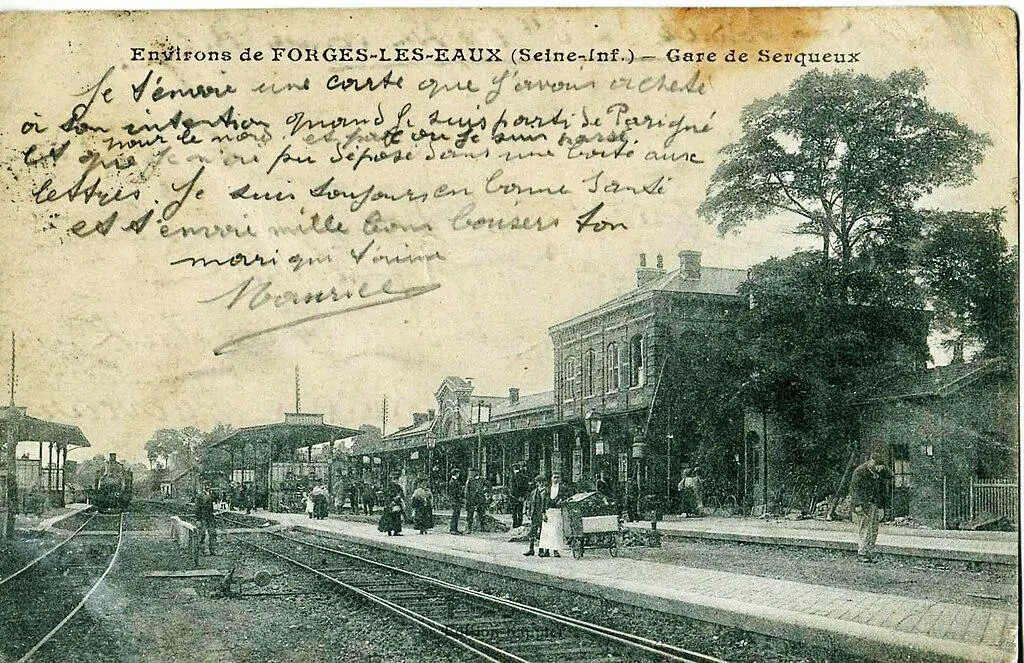 Environs de FORGES-LES-EAUX (Seine-Inf.) — Gare de Serqueux
Je t'envoie une carte que j'avais acheté
à ton intention quand je suis parti de Parigné
pour le nord et par où je suis passé
et que je n'ai pu déposé dans une boite aux
lettres. Je suis toujours en bonne santé
et t'envoie mille bons baisers ton
mari qui t'aime
Maurice